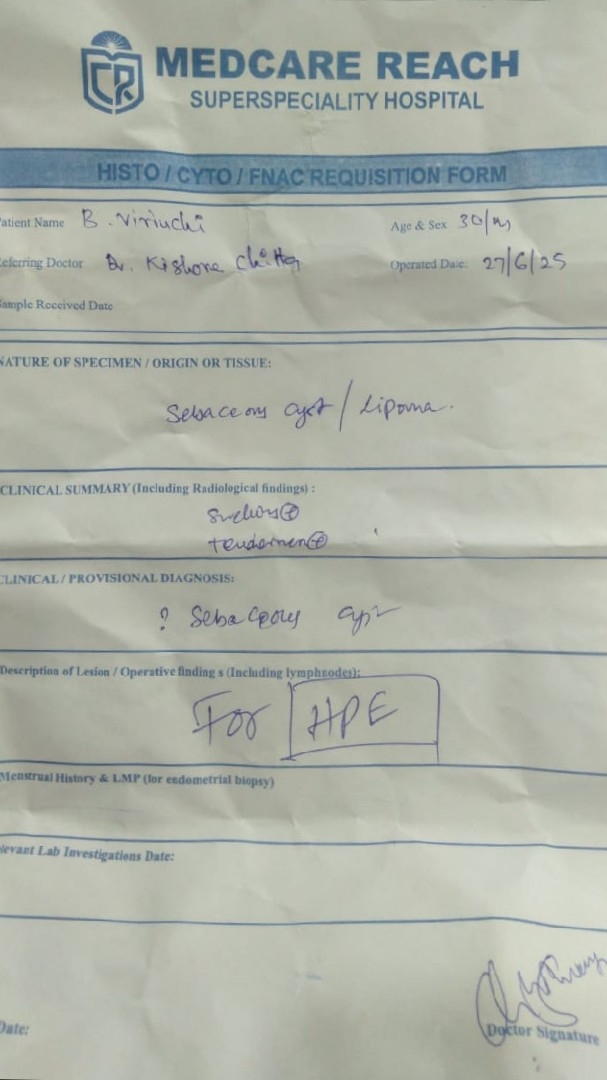 MEDCARE REACH
SUPERSPECIALITY HOSPITAL
HISTO / CYTO / FNAC REQUISITION FORM
atient Name B. Viriuchi Age & Sex 30/m
eferring Doctor Dr. Kishore Chitta Operated Date: 27/6/25
ample Received Date
NATURE OF SPECIMEN / ORIGIN OR TISSUE:
Sebaceous cyst / Lipoma.
CLINICAL SUMMARY (Including Radiological findings) :
⊕
tenderness ⊕
CLINICAL / PROVISIONAL DIAGNOSIS:
? Sebaceous cyst
Description of Lesion / Operative finding s (Including lymphnodes):
For HPE
Menstrual History & LMP (for endometrial biopsy)
levant Lab Investigations Date:
Date:
Doctor Signature